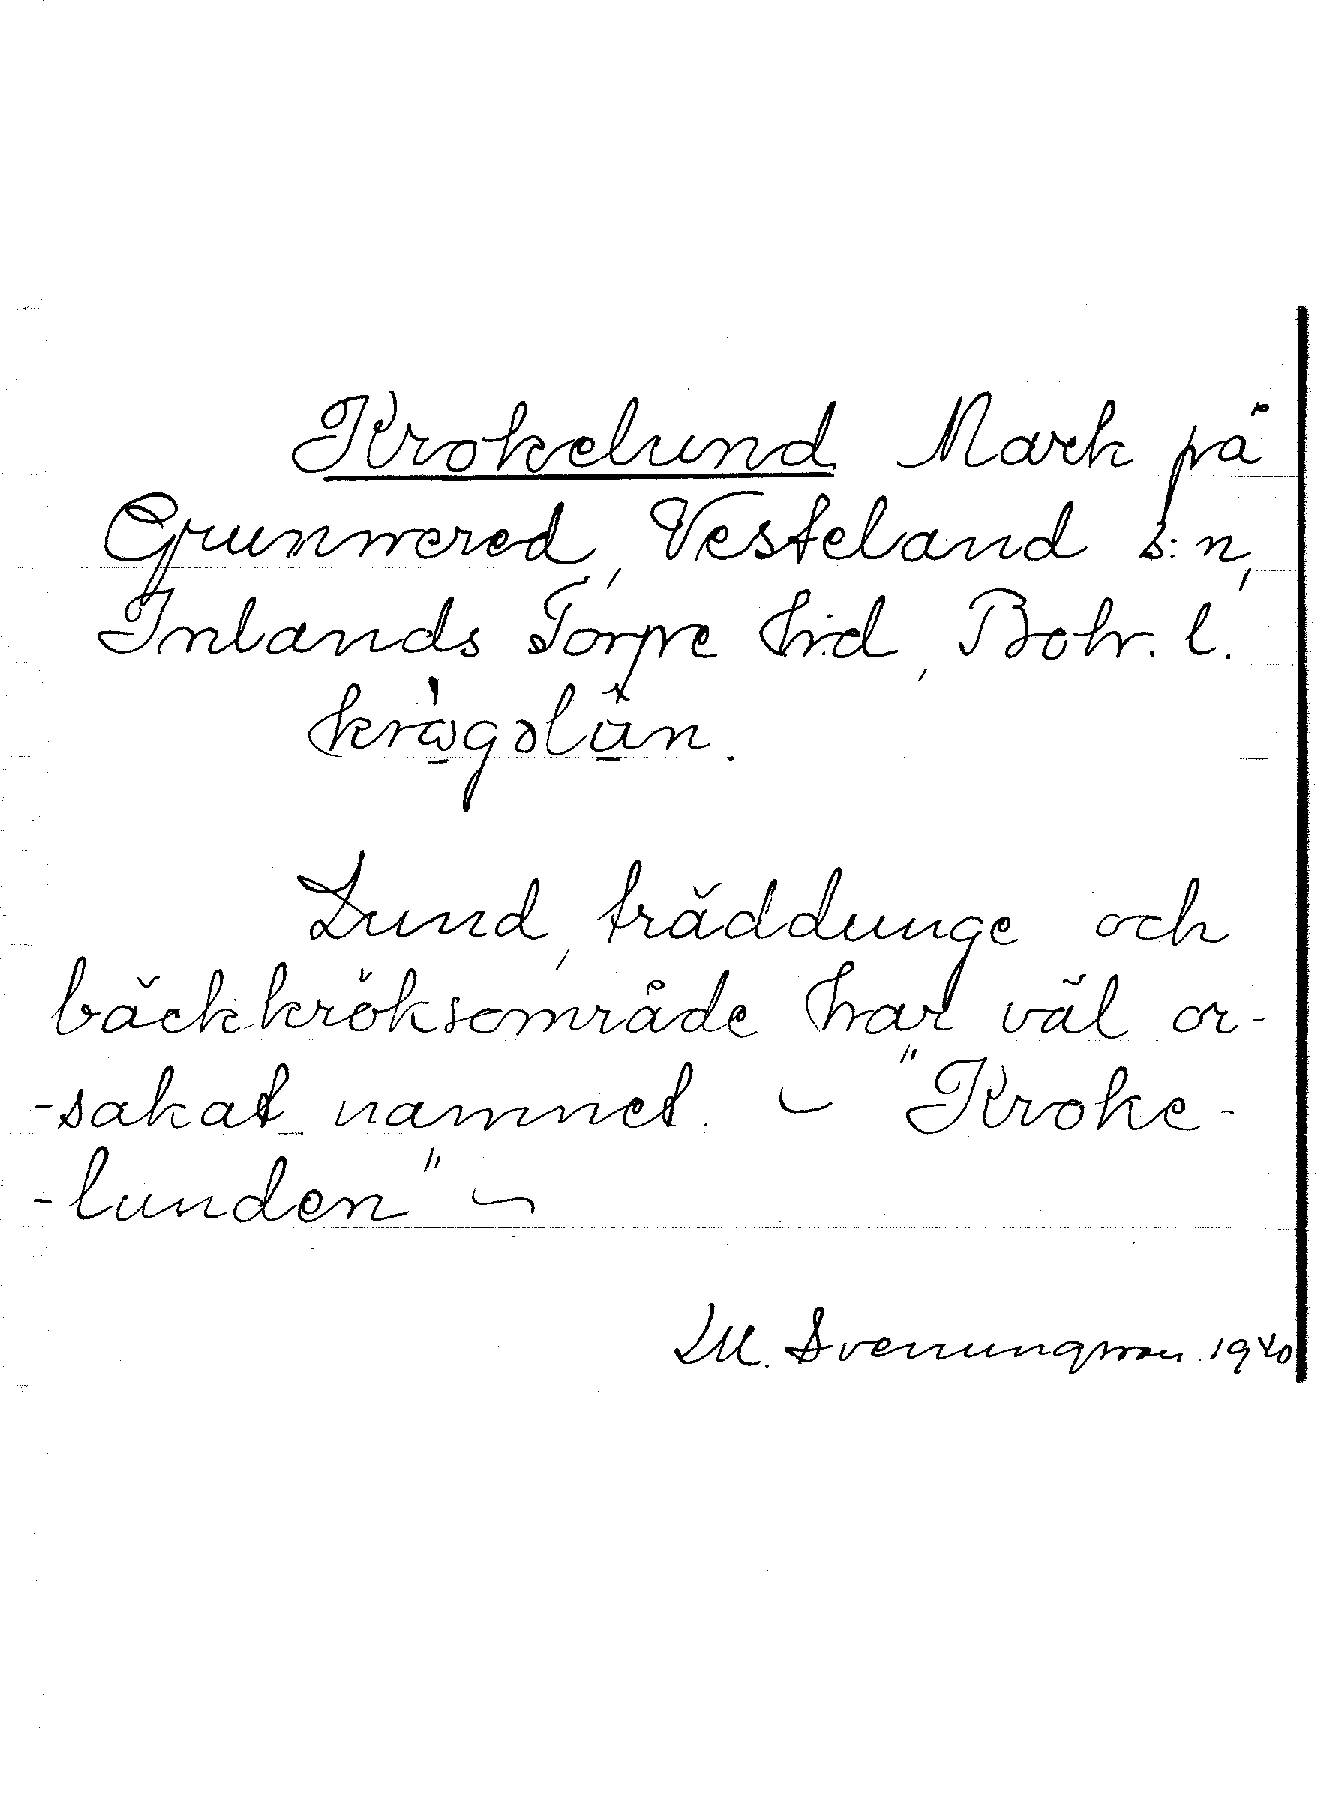 Krokelund Mark på
Grunnered, Vesteland s:n,
Inlands Torpe hd, Boh. l.
krò̱gəlu̱n.
Lund, träddunge och
bäckkröksområde har väl or-
-sakat namnet. – "Kroke-
-lunden" –
M. Svenungsson. 1940